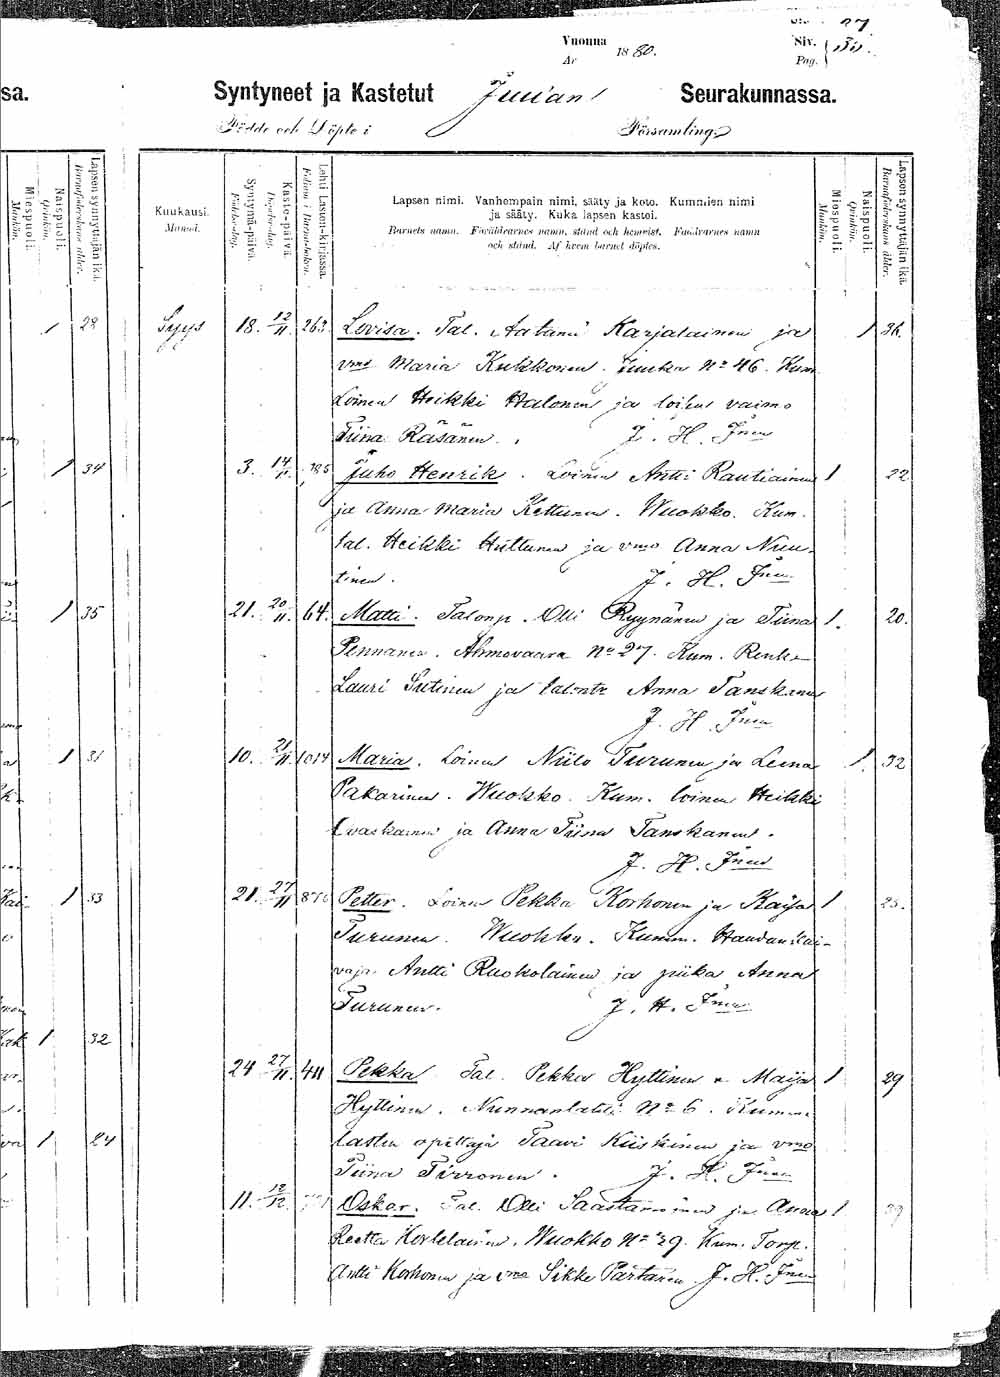 27
Vuonna 1880. Siv.
År Pag.
sa. Syntyneet ja Kastetut Juuan Seurakunnassa.
Födde och Döpte i Församling
Miespuoli. Mankön.
Naispuoli. Qvinkön.
Lapsen synnyttäjän ikä. Barnaföderskans ålder.
Kuukausi. Manad.
Syntymä-päivä. Födelsedag.
Kasto-päivä. Döpelsedag.
Lehti Lasten-kirjassa. Folium i Barna-boken.
Lapsen nimi. Vanhempain nimi, sääty ja koto. Kummien nimi
ja sääty. Kuka lapsen kastoi.
Barnets namn. Föräldrarnes namn, stånd och hemvist. Faddrarnes namn
och stånd. Af hvem barnet döptes.
Miespuoli. Mankön.
Naispuoli. Qvinkön.
Lapsen synnyttäjän ikä. Barnaföderskans ålder.
1 28
Syys 18. 12/11. 263 Lovisa. Tal. Aatami Karjalainen ja 1 36.
vmo Maria Kukkonen. Juuka No 46. Kum.
Loinen Heikki Halonen ja loisen vaimo
Tiina Räsänen. J. H.
1 34
3. 14/11. Juho Henrik. Loinen Antti Rautiainen 1 22
ja Anna Maria Kettunen. Wuokko. Kum.
tal. Heikki Huttunen ja vmo Anna Nuu-
tinen. J. H.
1 35
21. 20/11. 64. Matti. Talonp. Olli Ryynänen ja Tiina 1. 20.
Pennanen. Ahmovaara No 27. Kum. Renki
Lauri Sutinen ja talontr Anna Tanskanen
J. H.
1 31
10. 21/11. 1014 Maria. Loinen Niilo Turunen ja Leena 1. 32
Pakarinen. Wuokko. Kum. loinen Heikki
Ovaskainen ja Anna Tiina Tanskanen.
J. H.
1 33
21. 27/11 Petter. Loinen Pekka Korhonen ja Kaisa 1 25.
Turunen. Wuokko. Kumm. Haudankai-
vaja Antti Ruokolainen ja piika Anna
Turunen. J. H.
1 32
24 27/11. 411 Pekka Tal. Pekka Hyttinen Maija 1 29
Hyttinen. Nunnanlahti No 6. Kumm.
1 24
lasten opettaja Taavi Kiiskinen ja vmo
Tiina Tirronen. J. H.
11. 12/12. Oskar. Tal. Olli Saastamoinen ja Anna 1
Reetta Kortelainen. Wuokko No 29. Kum. Torp.
Antti Korhonen ja vmo Sikke Partanen J. H.